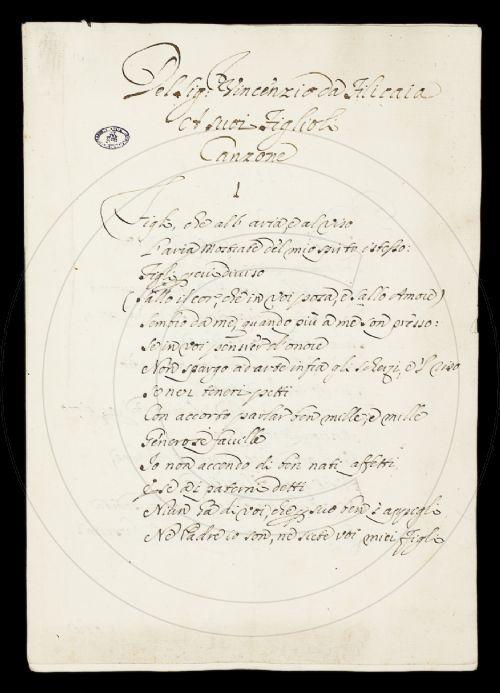 Del Sig: Vincenzio da Filicaia
A' suoi Figlioli
Canzone
1
Figli, che all'aria, e al viso
L'aria mostrate del mio spirto istesso:
Figli, per cui diviso
(Sallo il cor, che in voi posa, e sallo Amore)
Sembro da me, quando più a me son presso:
Se in voi pensier d'onore
Non spargo ad arte infra gli scherzi, e 'l riso
Se nei teneri petti
Con accorto parlar ben mille, e mille
Generose faville
Io non accendo di ben nati affetti,
E se ai paterni detti
Niun v'ha di voi, che al suo ben s'appigli
Nè Padre io son, nè siete voi miei Figli